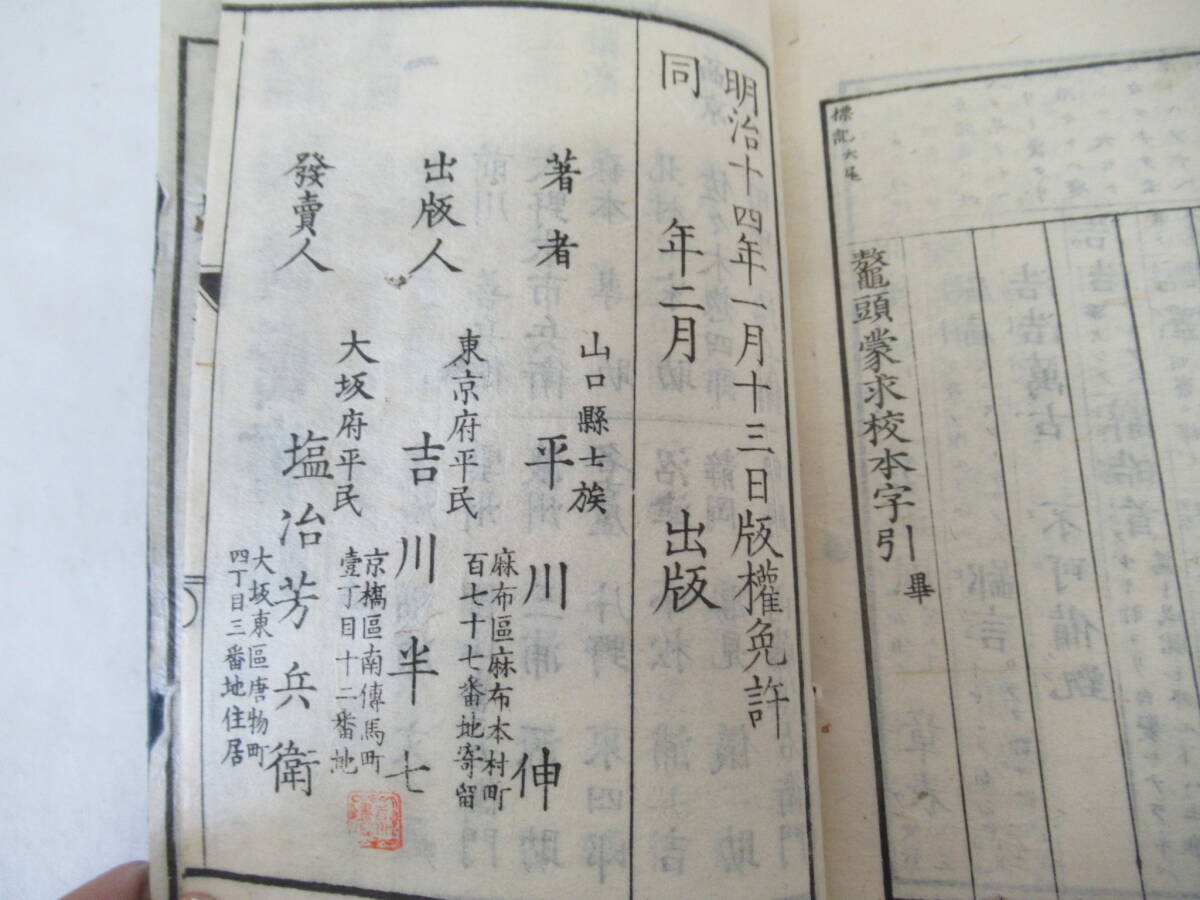 標記大尾
鼇頭蒙求校本字引 畢
明治十四年一月十三日版權免許
同 年二月 出版
著者
山口縣士族
平川伸
麻布區麻布本村町
百七十七番地寄留
出版人
東京府平民
吉川半七
京橋區南傳馬町
壹丁目十二番地
發賣人
大坂府平民
塩冶芳兵衛
大坂東區唐物町
四丁目三番地住居